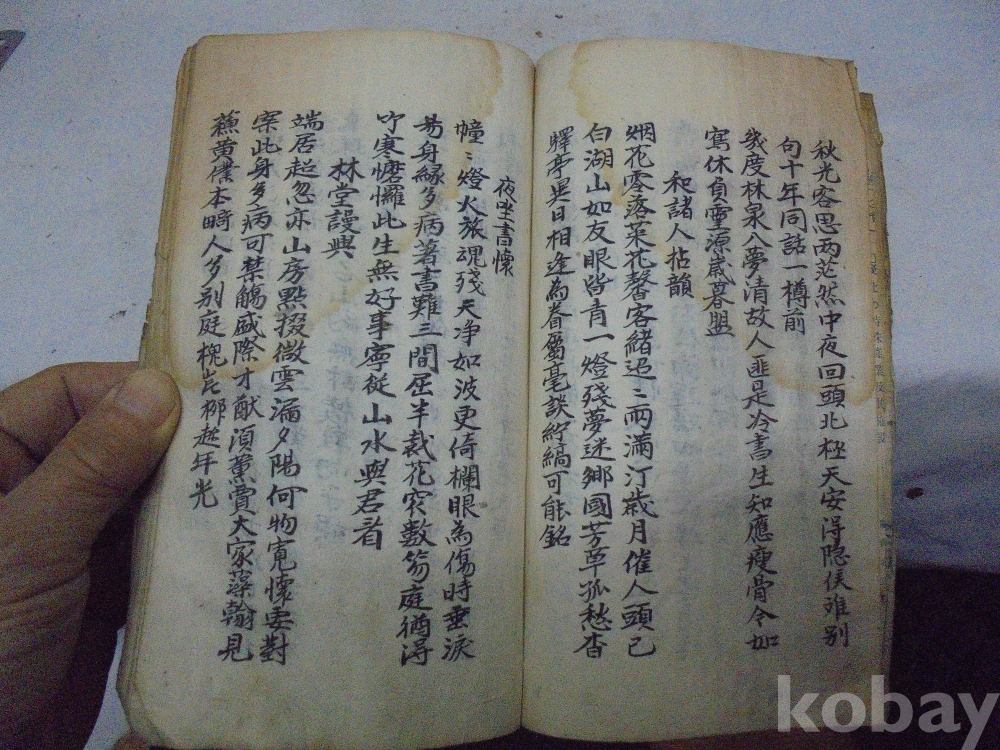 秋光客思两茫然中夜回頭北極天安得隐侯难別
句十年同話一樽前
幾度林泉入夢清故人韭是冷書生知應瘦骨令如
寫休負靈源歲暮盟
和諸人拈韻
烟花零落菜花馨客緒迢〻雨滿汀歲月催人頭已
白湖山如友眼皆青一燈殘夢迷鄉國芳草孤愁杳
驛亭異日相逢為眷屬毫談紵縞可能銘
夜坐書懷
幢〻燈火旅魂殘天净如波更倚欄眼為傷時垂淚
易身緣多病著書難三間屈半裁花窄數笏庭猶淂
吖寒懺儸此生無好事寧從山水與君看
林堂謾興
端居超忽亦山房點掇微雲漏夕陽何物寬懷要對
案此身多病可禁觴盛際才猷湏黨賈大家藻翰見
蘓黄僕本畸人多别庭槐岸柳趂年光
kobay